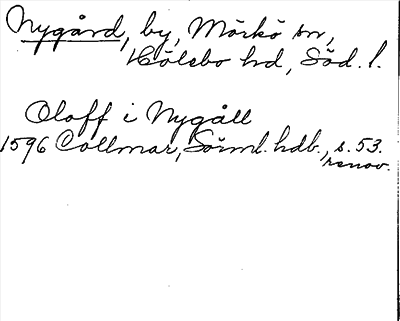 Nygård, by, Mörkö sn,
Hölebo hd, Söd. l.
Oloff i Nygåll
1596 Collmar, Sörml. hdb., s. 53.
renov.